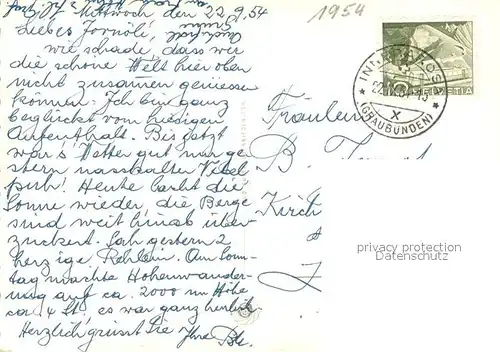 Mittwoch den 22.9.54
1954
Liebes
wie schade, dass wir
die schöne Welt hier oben
nicht zusammen geniessen
können. Ich bin ganz
beglückt vom hiesigen
Aufenthalt. Bis jetzt
war's Wetter gut nur ge-
stern nasskalter Nebel
puh! Heute lacht die
Sonne wieder, die Berge
sind weit hinab über-
zuckert. Sah gestern 2
herzige Rehlein. Am Sonn-
tag machte Höhenwander-
ung auf ca. 2000 m Höhe
ca. 4 St. es war ganz herrlich.
Herzlich grüsst Sie Ihre
HELVETIA
22.IX.54-15
X
(GRAUBÜNDEN)
Fräulein
B.
Kirch
privacy protection
Datenschutz